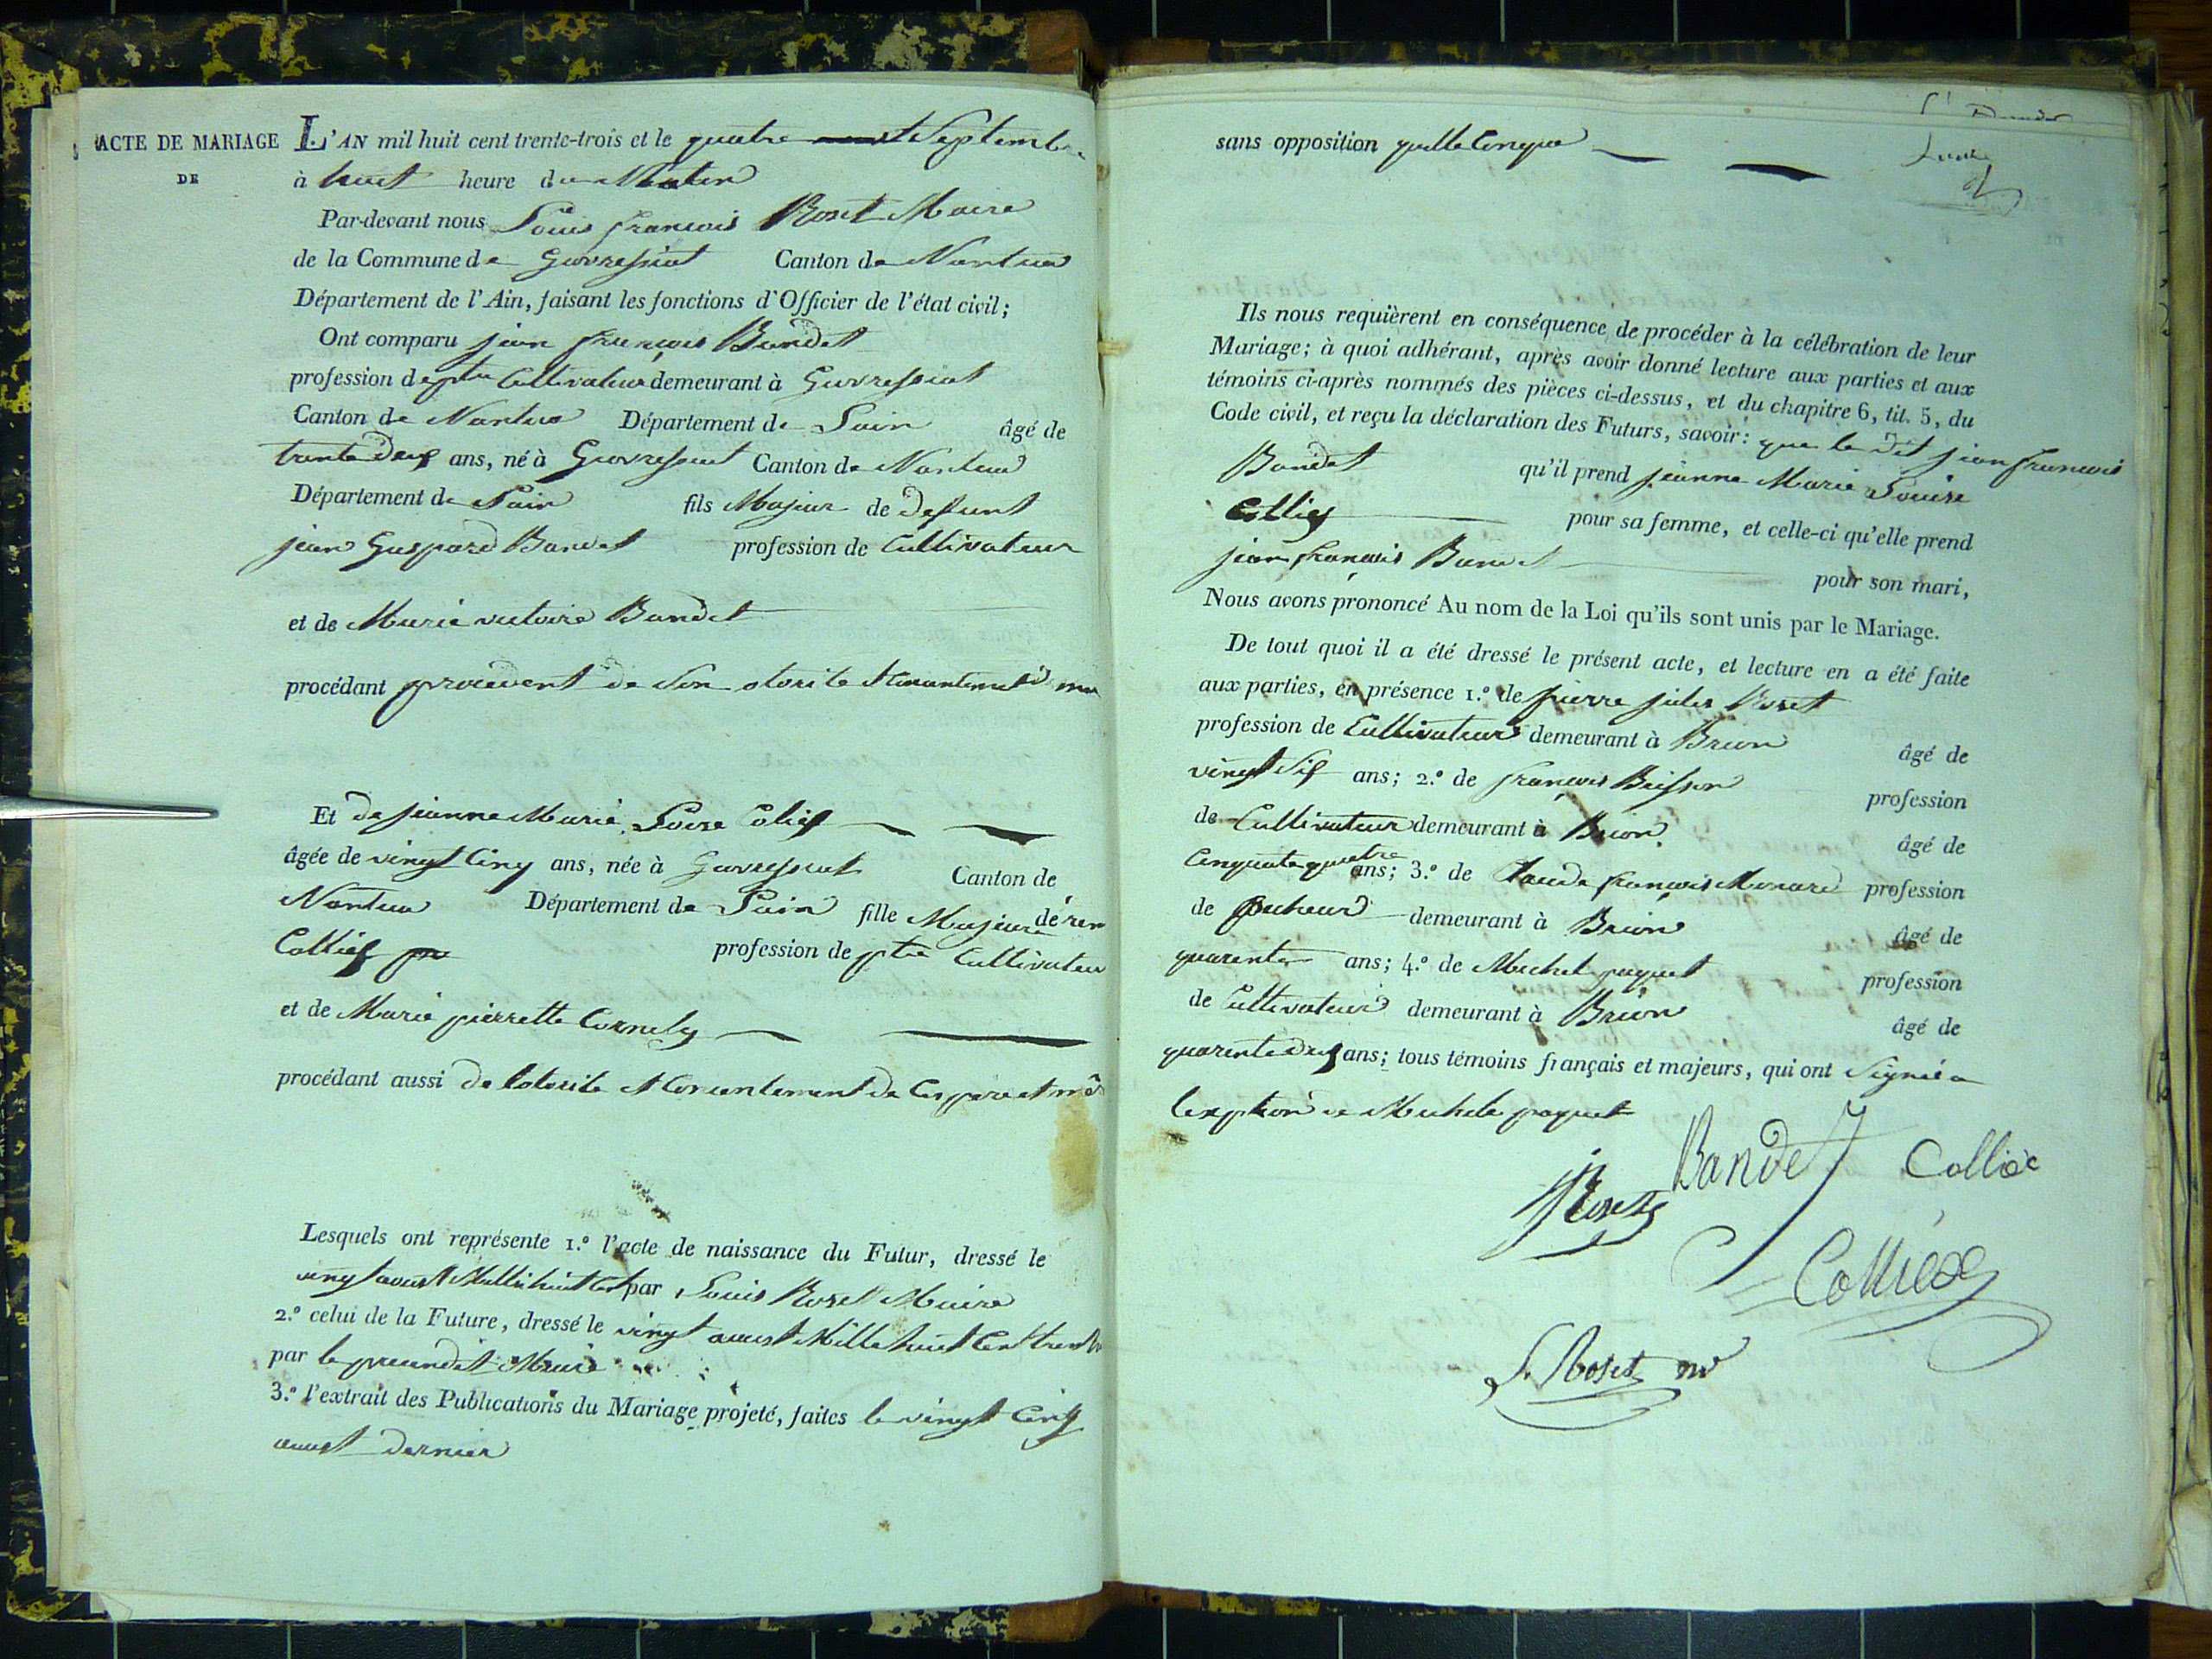 ACTE DE MARIAGE
DE
L'AN mil huit cent trente-trois et le quatre Septembre
à huit heure du Matin
Par-devant nous Louis françois Roset Maire
de la Commune de Giovressiat Canton de Nantua
Département de l'Ain, faisant les fonctions d'Officier de l'état civil;
Ont comparu jean françois Bandet
profession de ptre Cultivateur demeurant à Giovressiat
Canton de Nantua Département de Lain âgé de
trente deux ans, né à Giovressiat Canton de Nantua
Département de Lain fils Majeur de defunt
jean Gaspard Bandet profession de Cultivateur
et de Marie victoire Bandet
procédant procedent de son otorite et
Et de jeanne Marie Loise Coliex
âgée de vingt Cinq ans, née à Giovressiat Canton de
Nantua Département de Lain fille Majeure de
Colliex profession de ptre Cultivateur
et de Marie pierrette Cornely
procédant aussi de lotorite et Consentement de Ces pere et mêr
Lesquels ont représente 1.º l'acte de naissance du Futur, dressé le
vingt aoust Mille huit Cent par Louis Roset Maire
2.º celui de la Future, dressé le vingt aoust Mille huit Cent
par le Maire
3.º l'extrait des Publications du Mariage projeté, faites le vingt Cinq
aoust dernier
sans opposition quelle Conque
Ils nous requièrent en conséquence de procéder à la célébration de leur
Mariage; à quoi adhérant, après avoir donné lecture aux parties et aux
témoins ci-après nommés des pièces ci-dessus, et du chapitre 6, tit. 5, du
Code civil, et reçu la déclaration des Futurs, savoir: que le dit jean francois
Bandet qu'il prend jeanne Marie Louise
Colliex pour sa femme, et celle-ci qu'elle prend
jean françois Bandet pour son mari,
Nous avons prononcé Au nom de la Loi qu'ils sont unis par le Mariage.
De tout quoi il a été dressé le présent acte, et lecture en a été faite
aux parties, en présence 1.º de pierre jules Roset
profession de Cultivateur demeurant à Brion âgé de
vingt Six ans; 2.º de françois Buisson profession
de Cultivateur demeurant à Brion âgé de
Cinquante quatre ans; 3.º de Claude françois Monard profession
de pecheur demeurant à Brion âgé de
quarente ans; 4.º de Michel paquet profession
de Cultivateur demeurant à Brion âgé de
quarente deux ans; tous témoins français et majeurs, qui ont Signé a
lexption de Michele paquet
Bandet Colliex
Roset
Colliex
L. Roset mr